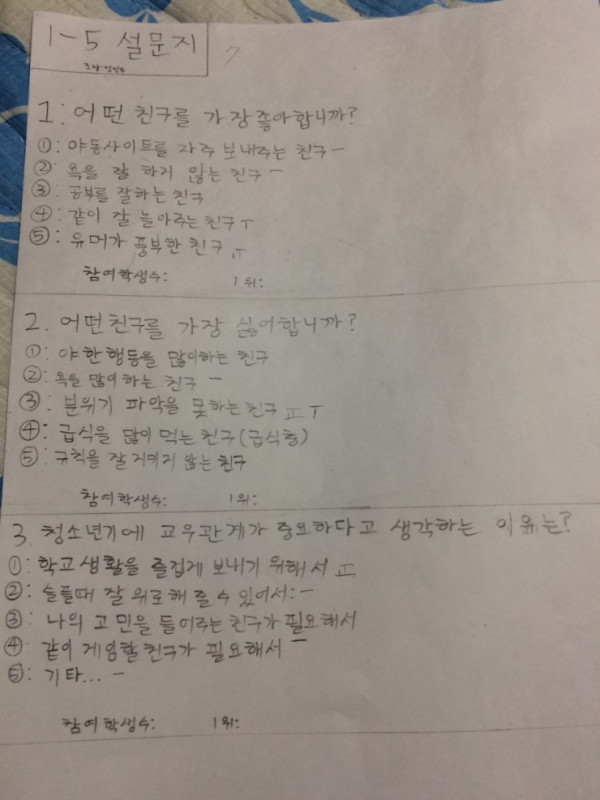 1-5 설문지
1: 어떤 친구를 가장 좋아합니까?
①: 야동사이트를 자주 보내주는 친구 ㅡ
②: 욕을 잘 하지 않는 친구 ㅡ
③: 공부를 잘하는 친구
④: 같이 잘 놀아주는 친구 ㅜ
⑤: 유머가 풍부한 친구 ㅜ
참여학생수: 1위:
2. 어떤친구를 가장 싫어합니까?
①: 야한행동을 많이하는 친구
②: 욕을 많이하는 친구 ㅡ
③: 분위기 파악을 못하는친구 ㅜ
④: 급식을 많이 먹는 친구(급식충)
⑤: 규칙을 잘 지키지 않는 친구
참여학생수: 1위:
3. 청소년기에 교우관계가 중요하다고 생각하는 이유는?
①: 학교생활을 즐겁게 보내기 위해서
②: 슬플때 잘 위로해 줄 수 있어서: ㅡ
③: 나의 고민을 들어주는친구가 필요해서
④: 같이 게임할 친구가 필요해서 ㅡ
⑤: 기타... ㅡ
참여학생수: 1위: